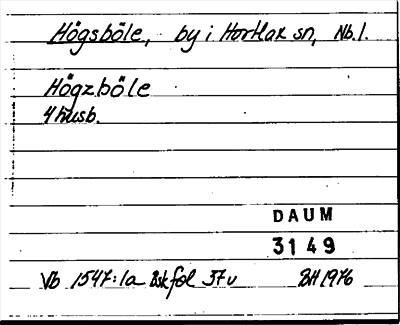 Högsböle, by i Hortlax sn, Nb.l.
Högzböle
4 husb.
DAUM
3149
Vb 1547:1a Bskfol 37v BH 1976